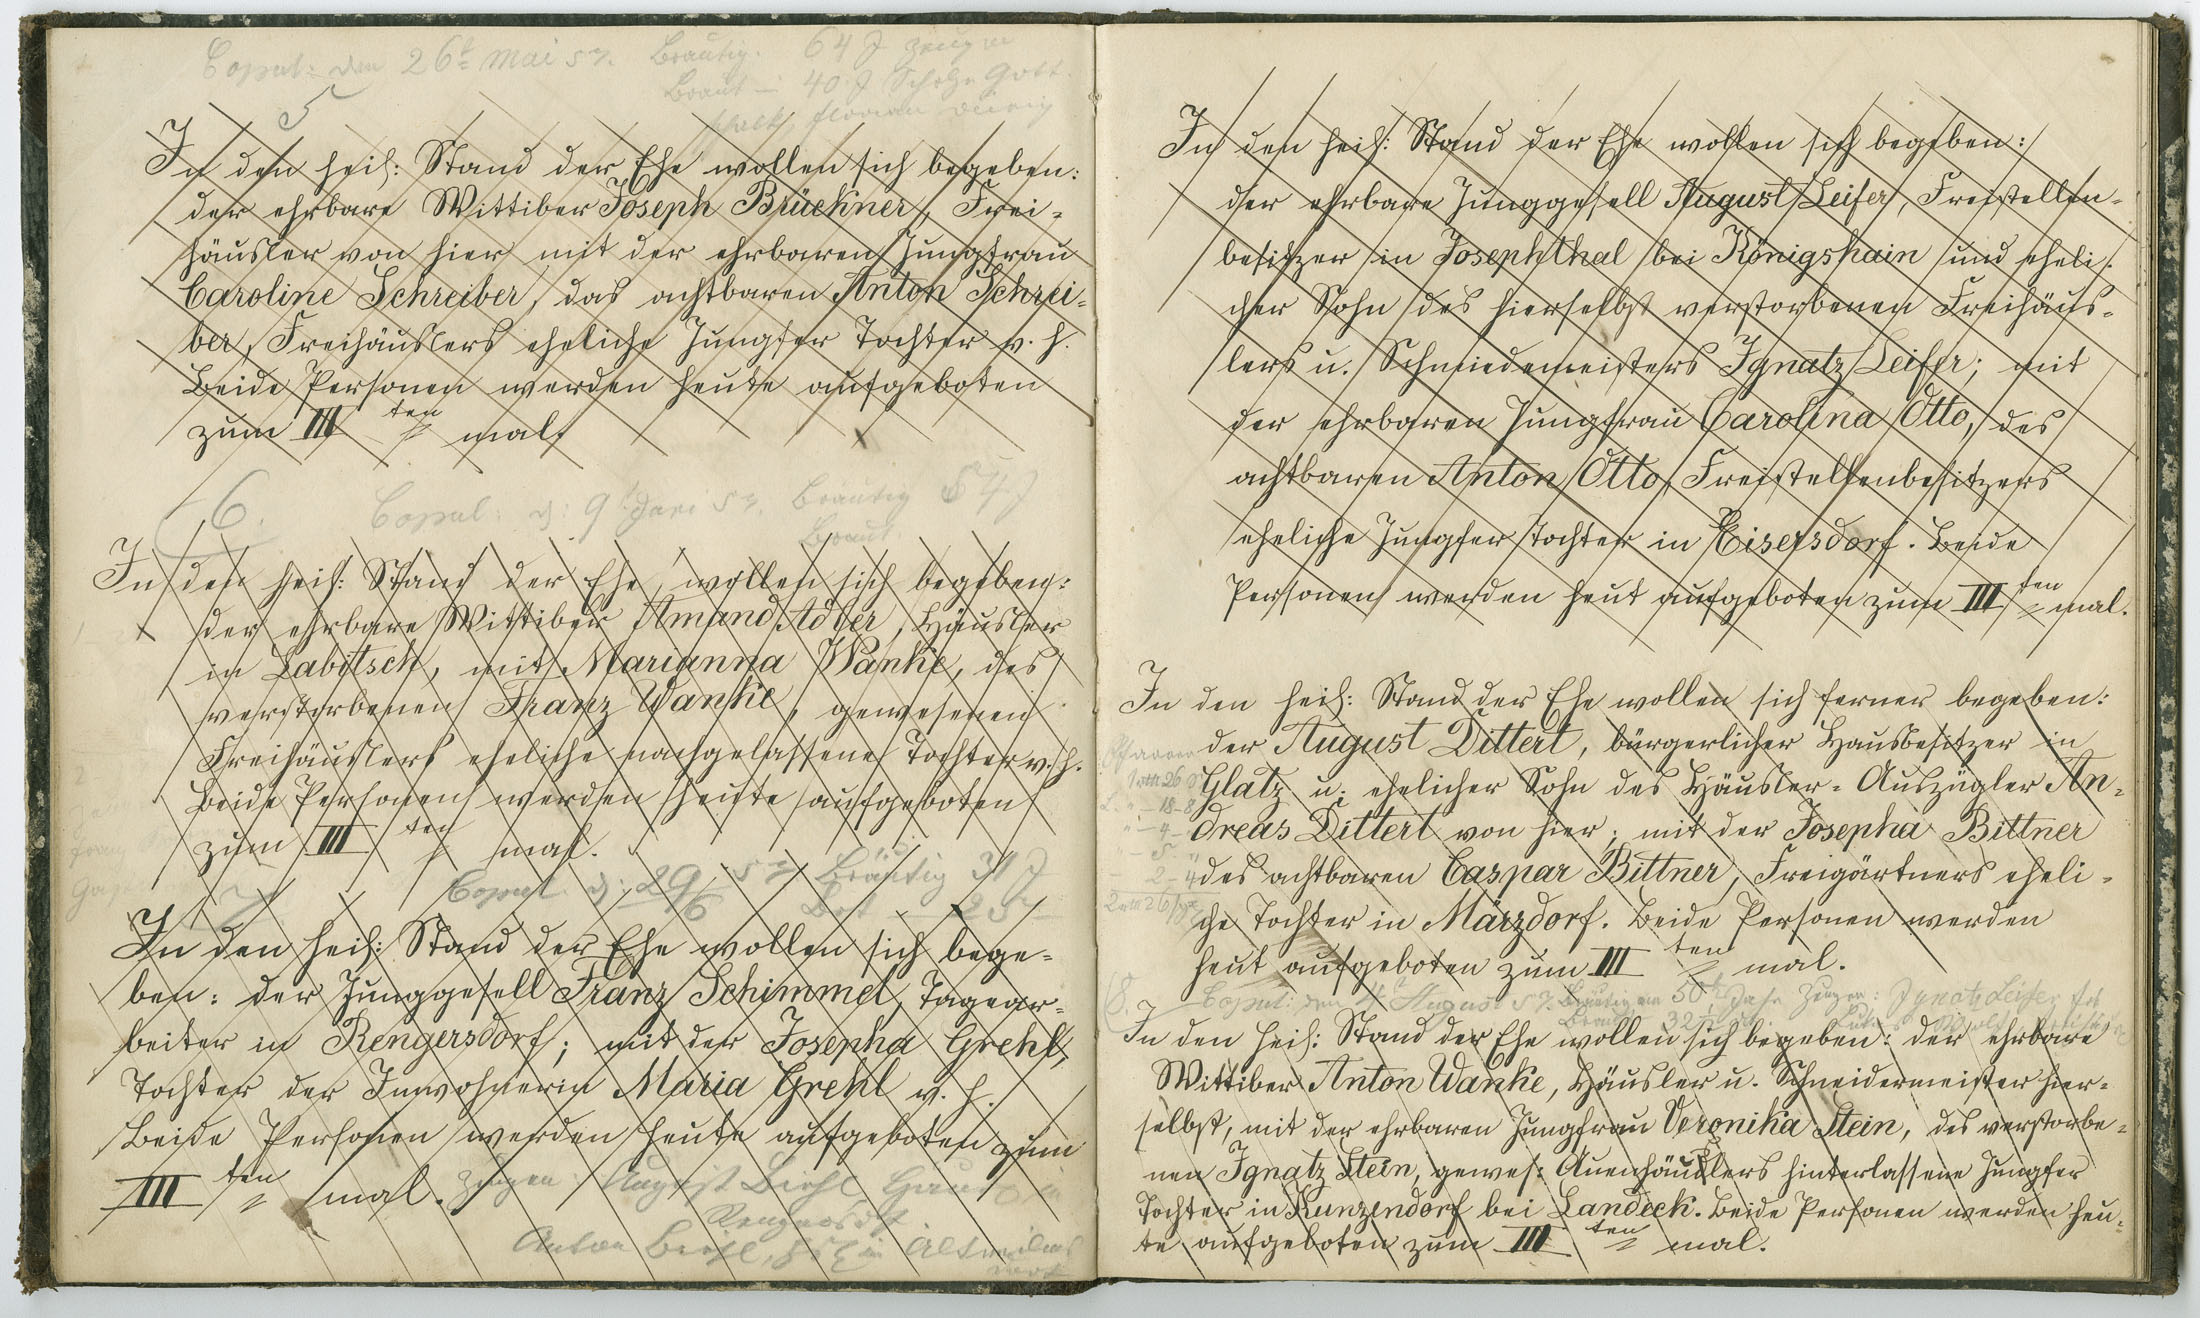 Copul: den 26t Mai 57. Bräutig. 64 J Zeugen
Braut – 40 J Scholz Gott
Florian
5
In den heil: Stand der Ehe wollen sich begeben:
der ehrbare Wittiber Joseph Brückner, Frei-
häusler von hier mit der ehrbaren Jungfrau
Caroline Schreiber, das achtbaren Anton Schrei-
ber, Freihäuslers eheliche Jungfer Tochter v. h.
Beide Personen werden heute aufgeboten
zum III ten mal.
6. Copul: d: 9t Juni 57. Bräutig 54 J
Braut.
In den heil: Stand der Ehe wollen sich begeben:
der ehrbare Wittiber Amand Adler, Häusler
in Labitsch, mit Marianna Wanke, des
verstorbenen Franz Wanke, gewesenen
Freihäuslers eheliche nachgelassene Tochter v. h.
Beide Personen werden heute aufgeboten
zum III ten mal.
7. Copul. d: 29/6 57 Bräutig 31 J
In den heil: Stand der Ehe wollen sich bege-
ben: der Junggesell Franz Schimmel, Tagear-
beiter in Rengersdorf; mit der Josepha Grehl,
Tochter der Inwohnerin Maria Grehl v. h.
Beide Personen werden heute aufgeboten zum
III ten mal. Zeugen: August
Rengersdf
Anton
In den heil: Stand der Ehe wollen sich begeben:
der ehrbare Junggesell August Leifer, Freistellen-
besitzer in Josephthal bei Königshain und eheli-
cher Sohn des hierselbst verstorbenen Freihäus-
lers u. Schmiedemeisters Ignatz Leifer; mit
der ehrbaren Jungfrau Carolina Otto, des
achtbaren Anton Otto, Freistellenbesitzers
eheliche Jungfer Tochter in Eisersdorf. Beide
Personen werden heut aufgeboten zum III ten mal.
In den heil: Stand der Ehe wollen sich ferner begeben:
der August Dittert, bürgerlicher Hausbesitzer in
Glatz u. ehelicher Sohn des Häusler-Auszügler An-
dreas Dittert von hier; mit der Josepha Bittner
des achtbaren Caspar Bittner, Freigärtners eheli-
che Tochter in Märzdorf. Beide Personen werden
heut aufgeboten zum III ten mal.
8. Copul: den 4t August 57. Bräutigam 50 Jahr Zeugen: Ignatz Leifer
Braut 32
In den heil: Stand der Ehe wollen sich begeben: der ehrbare
Wittiber Anton Wanke, Häusler u. Schneidermeister hier-
selbst, mit der ehrbaren Jungfrau Veronika Stein, des verstorbe-
nen Ignatz Stein, gewes: Auenhäuslers hinterlassene Jungfer
Tochter in Kunzendorf bei Landeck. Beide Personen werden heu-
te aufgeboten zum III ten mal.